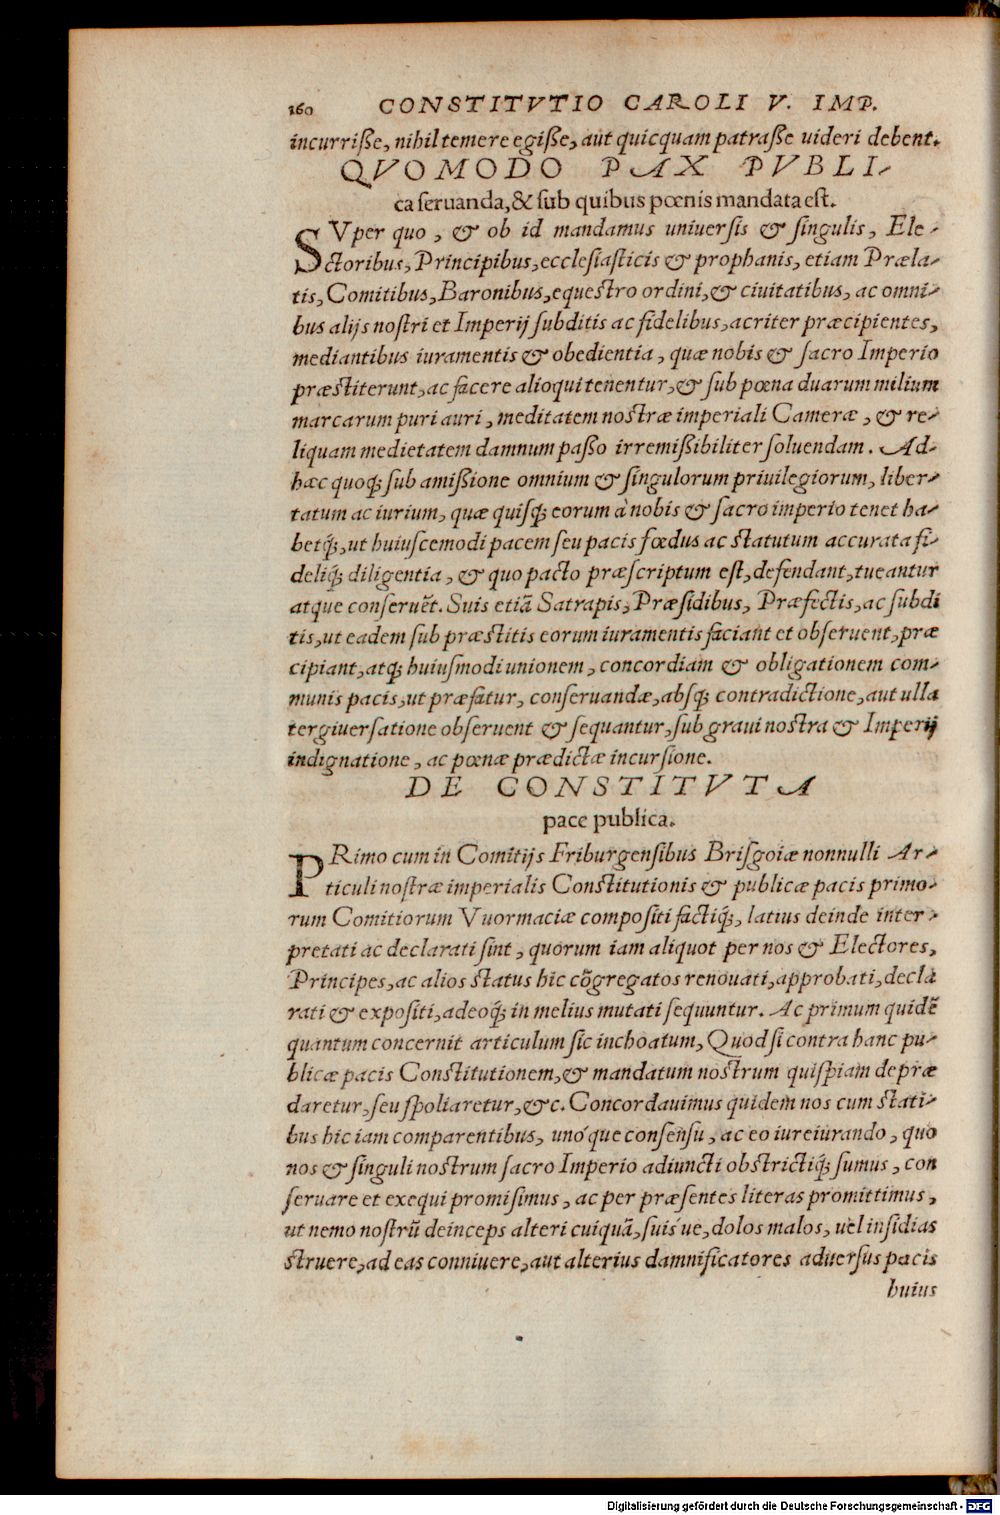 160 CONSTITVTIO CAROLI V. IMP.
incurriſſe, nihil temere egiſſe, aut quicquam patraſſe uideri debent.
QVOMODO PAX PVBLI-
ca ſeruanda, & ſub quibus pœnis mandata eſt.
SVper quo, & ob id mandamus uniuerſis & ſingulis, Ele-
ctoribus, Principibus, eccleſiaſticis & prophanis, etiam Præla-
tis, Comitibus, Baronibus, equeſtro ordini, & ciuitatibus, ac omni-
bus alijs noſtri et Imperij ſubditis ac fidelibus, acriter præcipientes,
mediantibus iuramentis & obedientia, quæ nobis & ſacro Imperio
præſtiterunt, ac facere alioqui tenentur, & ſub pœna duarum milium
marcarum puri auri, meditatem noſtræ imperiali Cameræ, & re-
liquam medietatem damnum paſſo irremiſſibiliter ſoluendam. Ad-
hæc quoq; ſub amiſſione omnium & ſingulorum priuilegiorum, liber-
tatum ac iurium, quæ quiſq; eorum à nobis & ſacro imperio tenet ha-
betq́;, ut huiuſcemodi pacem ſeu pacis fœdus ac ſtatutum accurata fi-
deliq́; diligentia, & quo pacto præſcriptum eſt, defendant, tueantur
atque conſeruẽt. Suis etiã Satrapis, Præſidibus, Præfectis, ac ſubdi
tis, ut eadem ſub præſtitis eorum iuramentis faciant et obſeruent, præ
cipiant, atq; huiuſmodi unionem, concordiam & obligationem com-
munis pacis, ut præfatur, conſeruandæ, abſq; contradictione, aut ulla
tergiuerſatione obſeruent & ſequantur, ſub graui noſtra & Imperij
indignatione, ac pœnæ prædictæ incurſione.
DE CONSTITVTA
pace publica.
PRimo cum in Comitijs Friburgenſibus Briſgoiæ nonnulli Ar-
ticuli noſtræ imperialis Conſtitutionis & publicæ pacis primo-
rum Comitiorum Vuormaciæ compoſiti factiq́;, latius deinde inter-
pretati ac declarati ſint, quorum iam aliquot per nos & Electores,
Principes, ac alios ſtatus hic cõgregatos renouati, approbati, decla
rati & expoſiti, adeoq́; in melius mutati ſequuntur. Ac primum quidẽ
quantum concernit articulum ſic inchoatum, Quod ſi contra hanc pu-
blicæ pacis Conſtitutionem, & mandatum noſtrum quiſpiam depræ
daretur, ſeu ſpoliaretur, &c. Concordauimus quidem nos cum ſtati-
bus hic iam comparentibus, unóque conſenſu, ac eo iureiurando, quo
nos & ſinguli noſtrum ſacro Imperio adiuncti obſtrictiq́; ſumus, con
ſeruare et exequi promiſimus, ac per præſentes literas promittimus,
ut nemo noſtrũ deinceps alteri cuiquã, ſuis ue, dolos malos, uel inſidias
ſtruere, ad eas conniuere, aut alterius damnificatores aduerſus pacis
huius
Digitalisierung gefördert durch die Deutsche Forschungsgemeinschaft - DFG